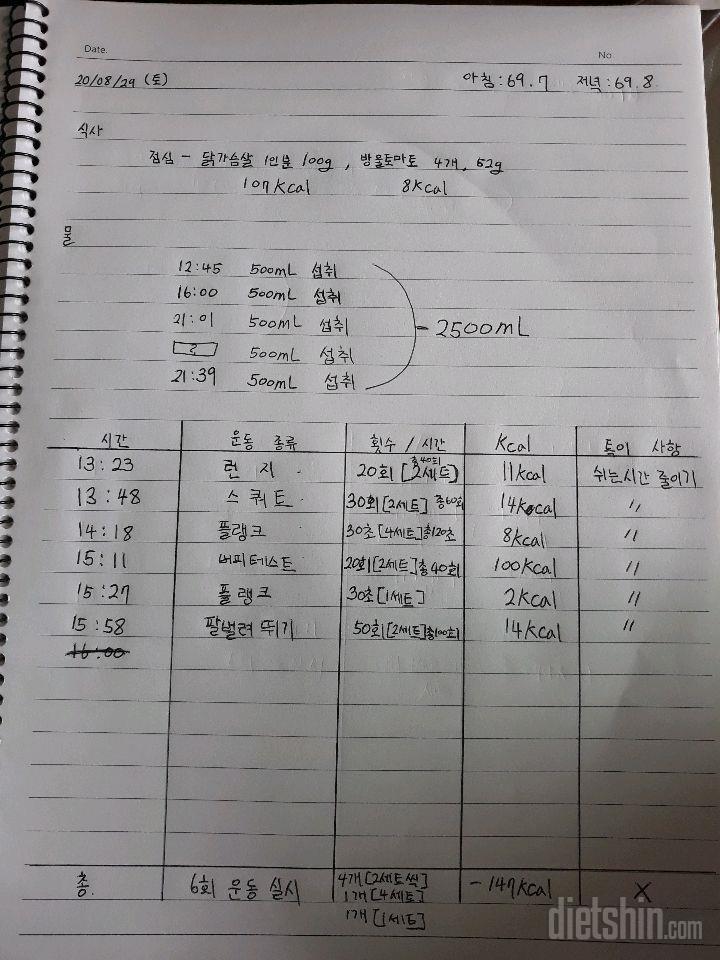 Date.
No
20/08/29 (토)
아침:69.7 저녁:69.8
식사
점심 - 닭가슴살 1인분 100g, 방울토마토 4개, 52g
107Kcal 8Kcal
물
12:45 500mL 섭취
16:00 500mL 섭취
21:01 500mL 섭취
500mL 섭취
21:39 500mL 섭취
- 2500mL
시간 운동 종류 횟수 / 시간 Kcal 특이 사항
13:23 런지 20회 [2세트] 총40회 11kcal 쉬는시간 줄이기
13:48 스쿼트 30회[2세트] 총60회 14Kcal 〃
14:18 플랭크 30초[4세트]총120초 8Kcal 〃
15:11 버피테스트 20회[2세트]총40회 100Kcal 〃
15:27 플랭크 30초[1세트] 2Kcal 〃
15:58 팔벌려 뛰기 50회[2세트]총100회 14Kcal 〃
16:00
총 6회 운동 실시 4개[2세트씩] -149Kcal X
1개[4세트]
1개[1세트]
dietshin.com